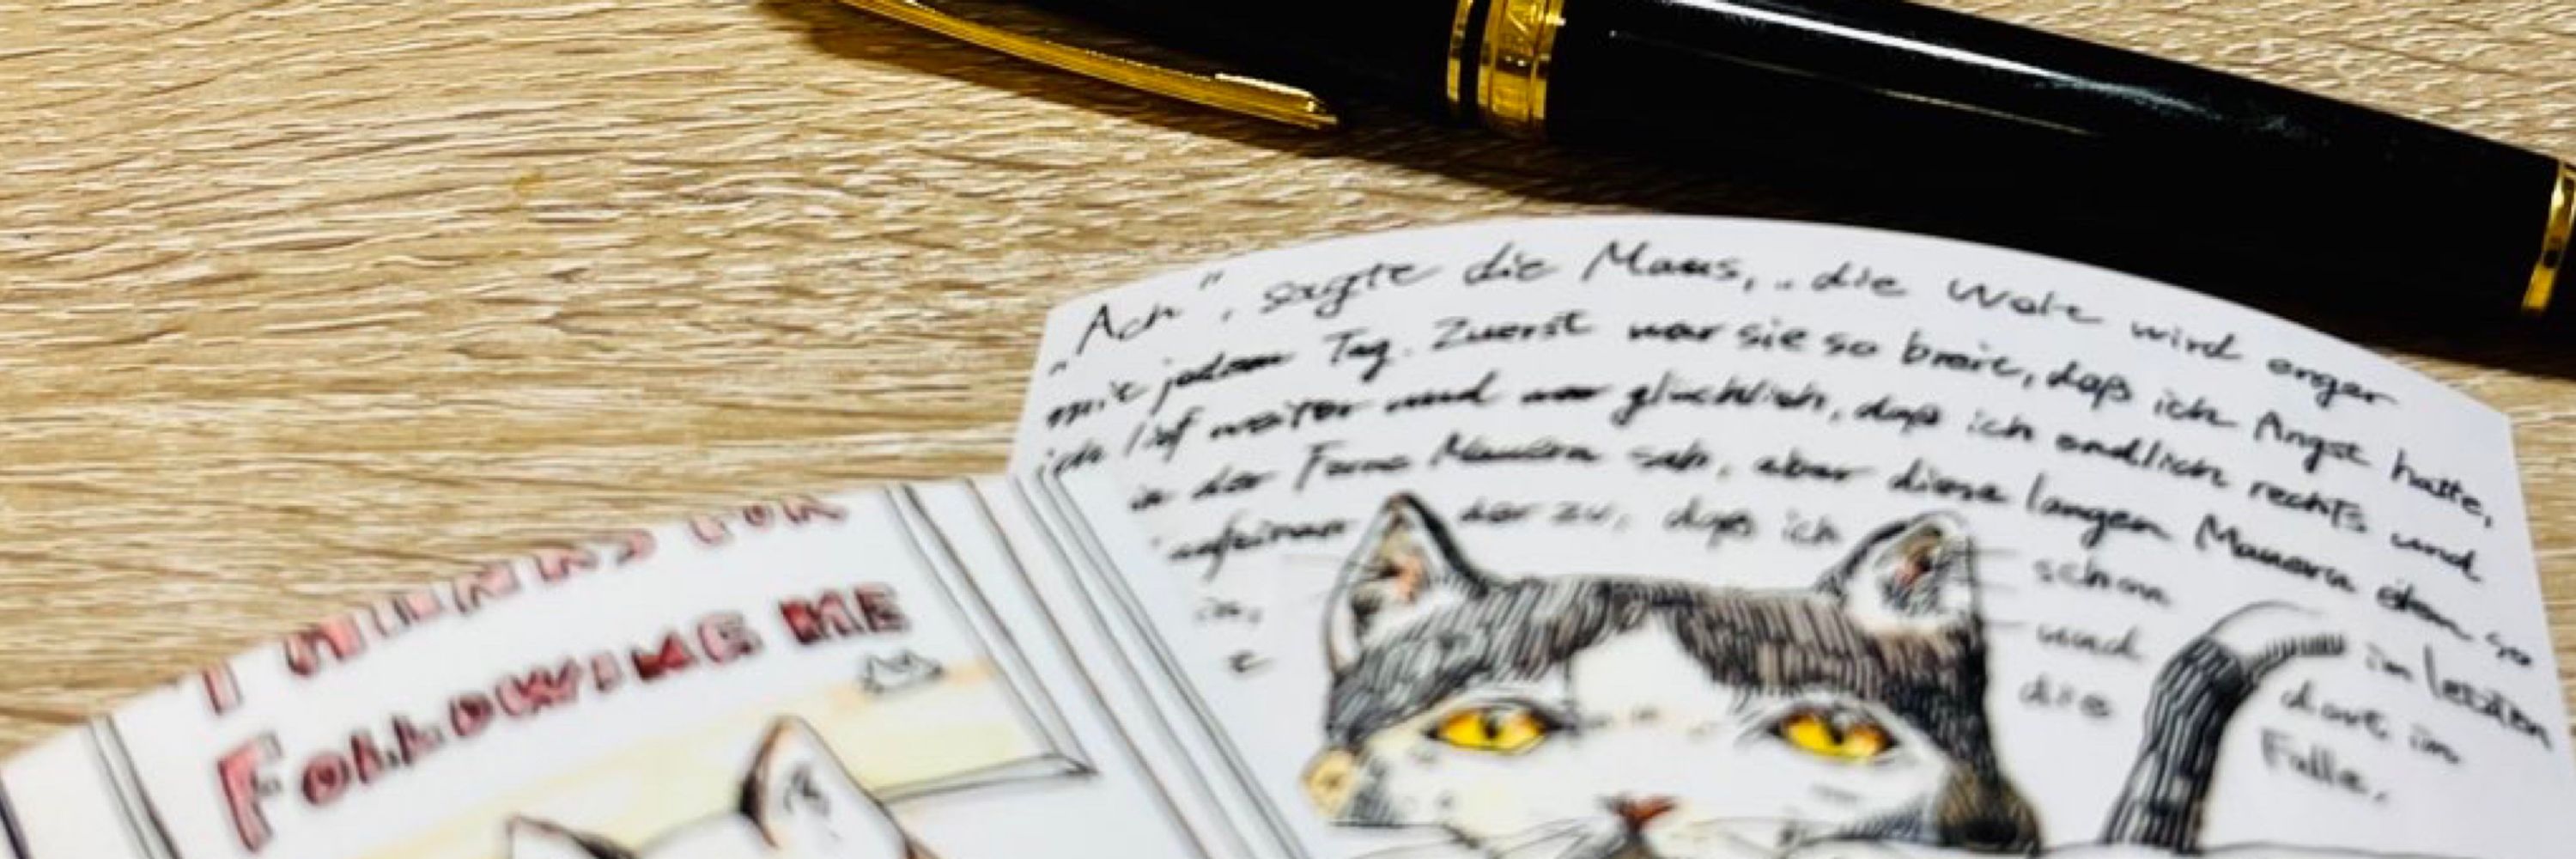 THANKS FOR
FOLLOWING ME
„Ach“, sagte die Maus, „die Welt wird enger
mit jedem Tag. Zuerst war sie so breit, daß ich Angst hatte,
ich lief weiter und war glücklich, daß ich endlich rechts und
in der Ferne Mauern sah, aber diese langen Mauern eilen so
aufeinander zu, daß ich schon im letzten
und dort im
die Falle,